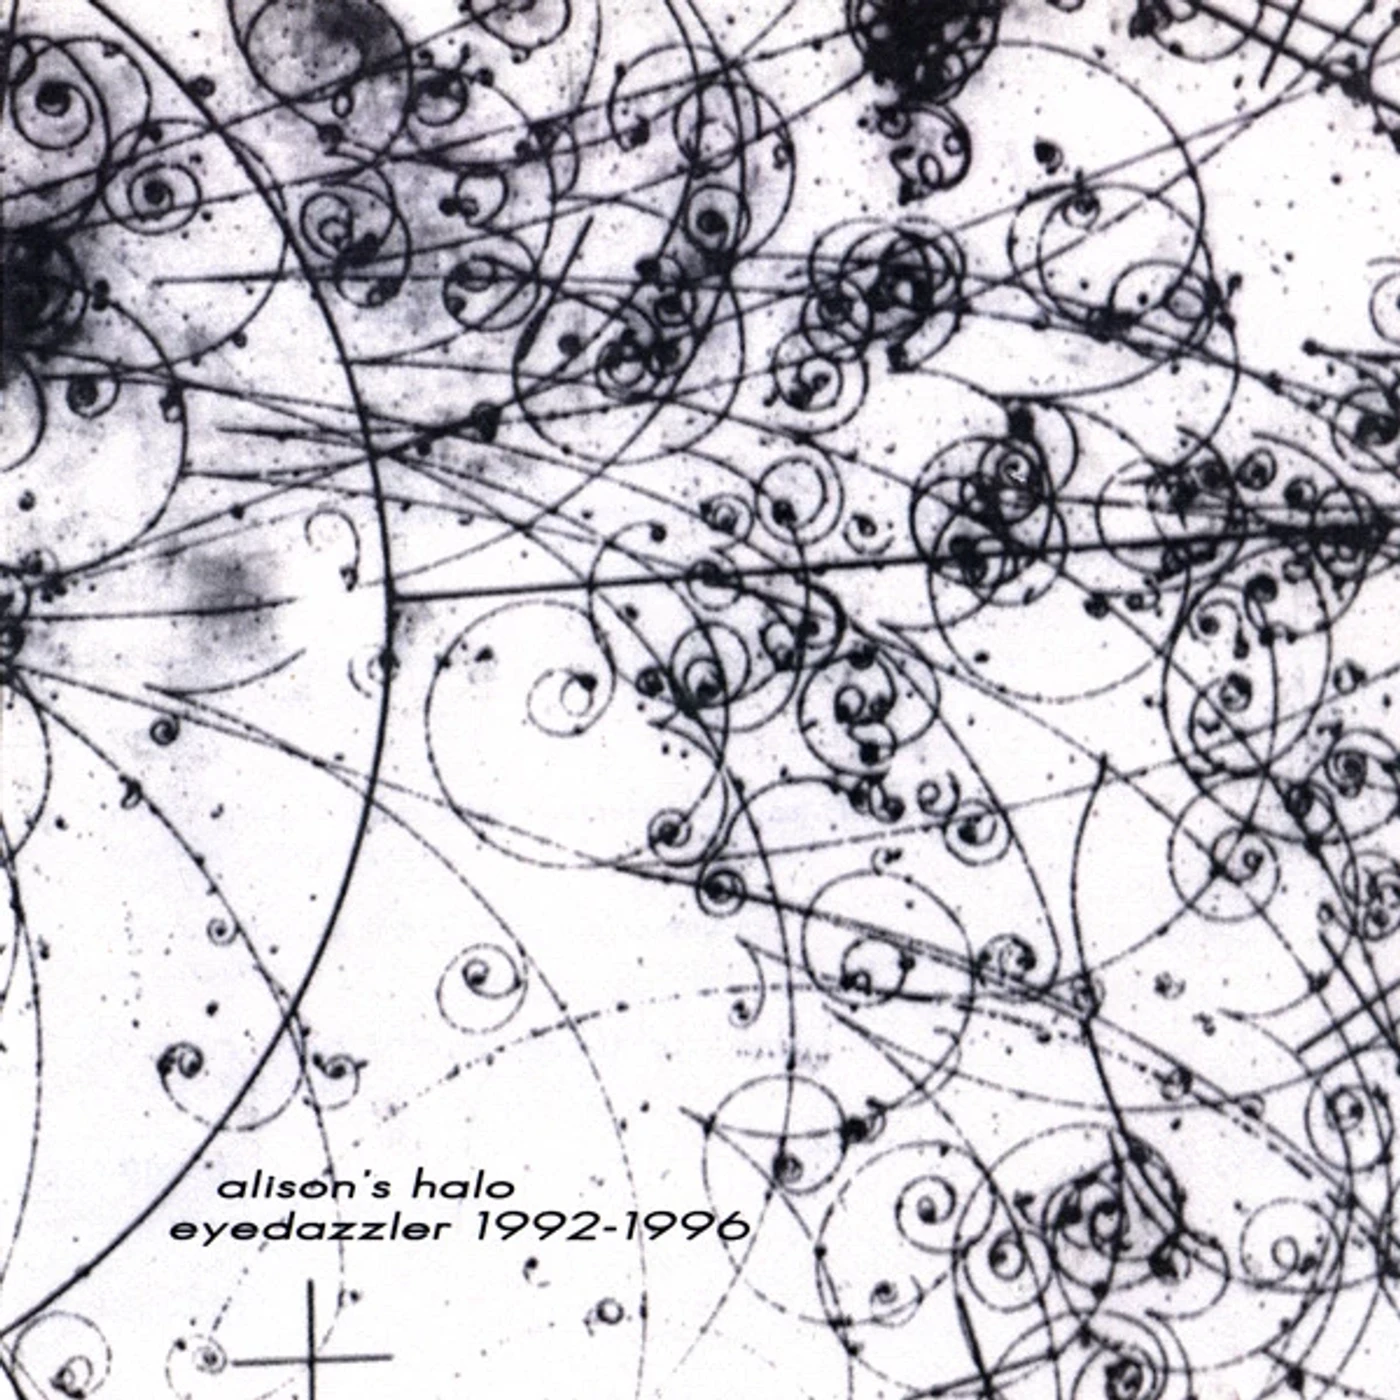 alison's halo
eyedazzler 1992-1996